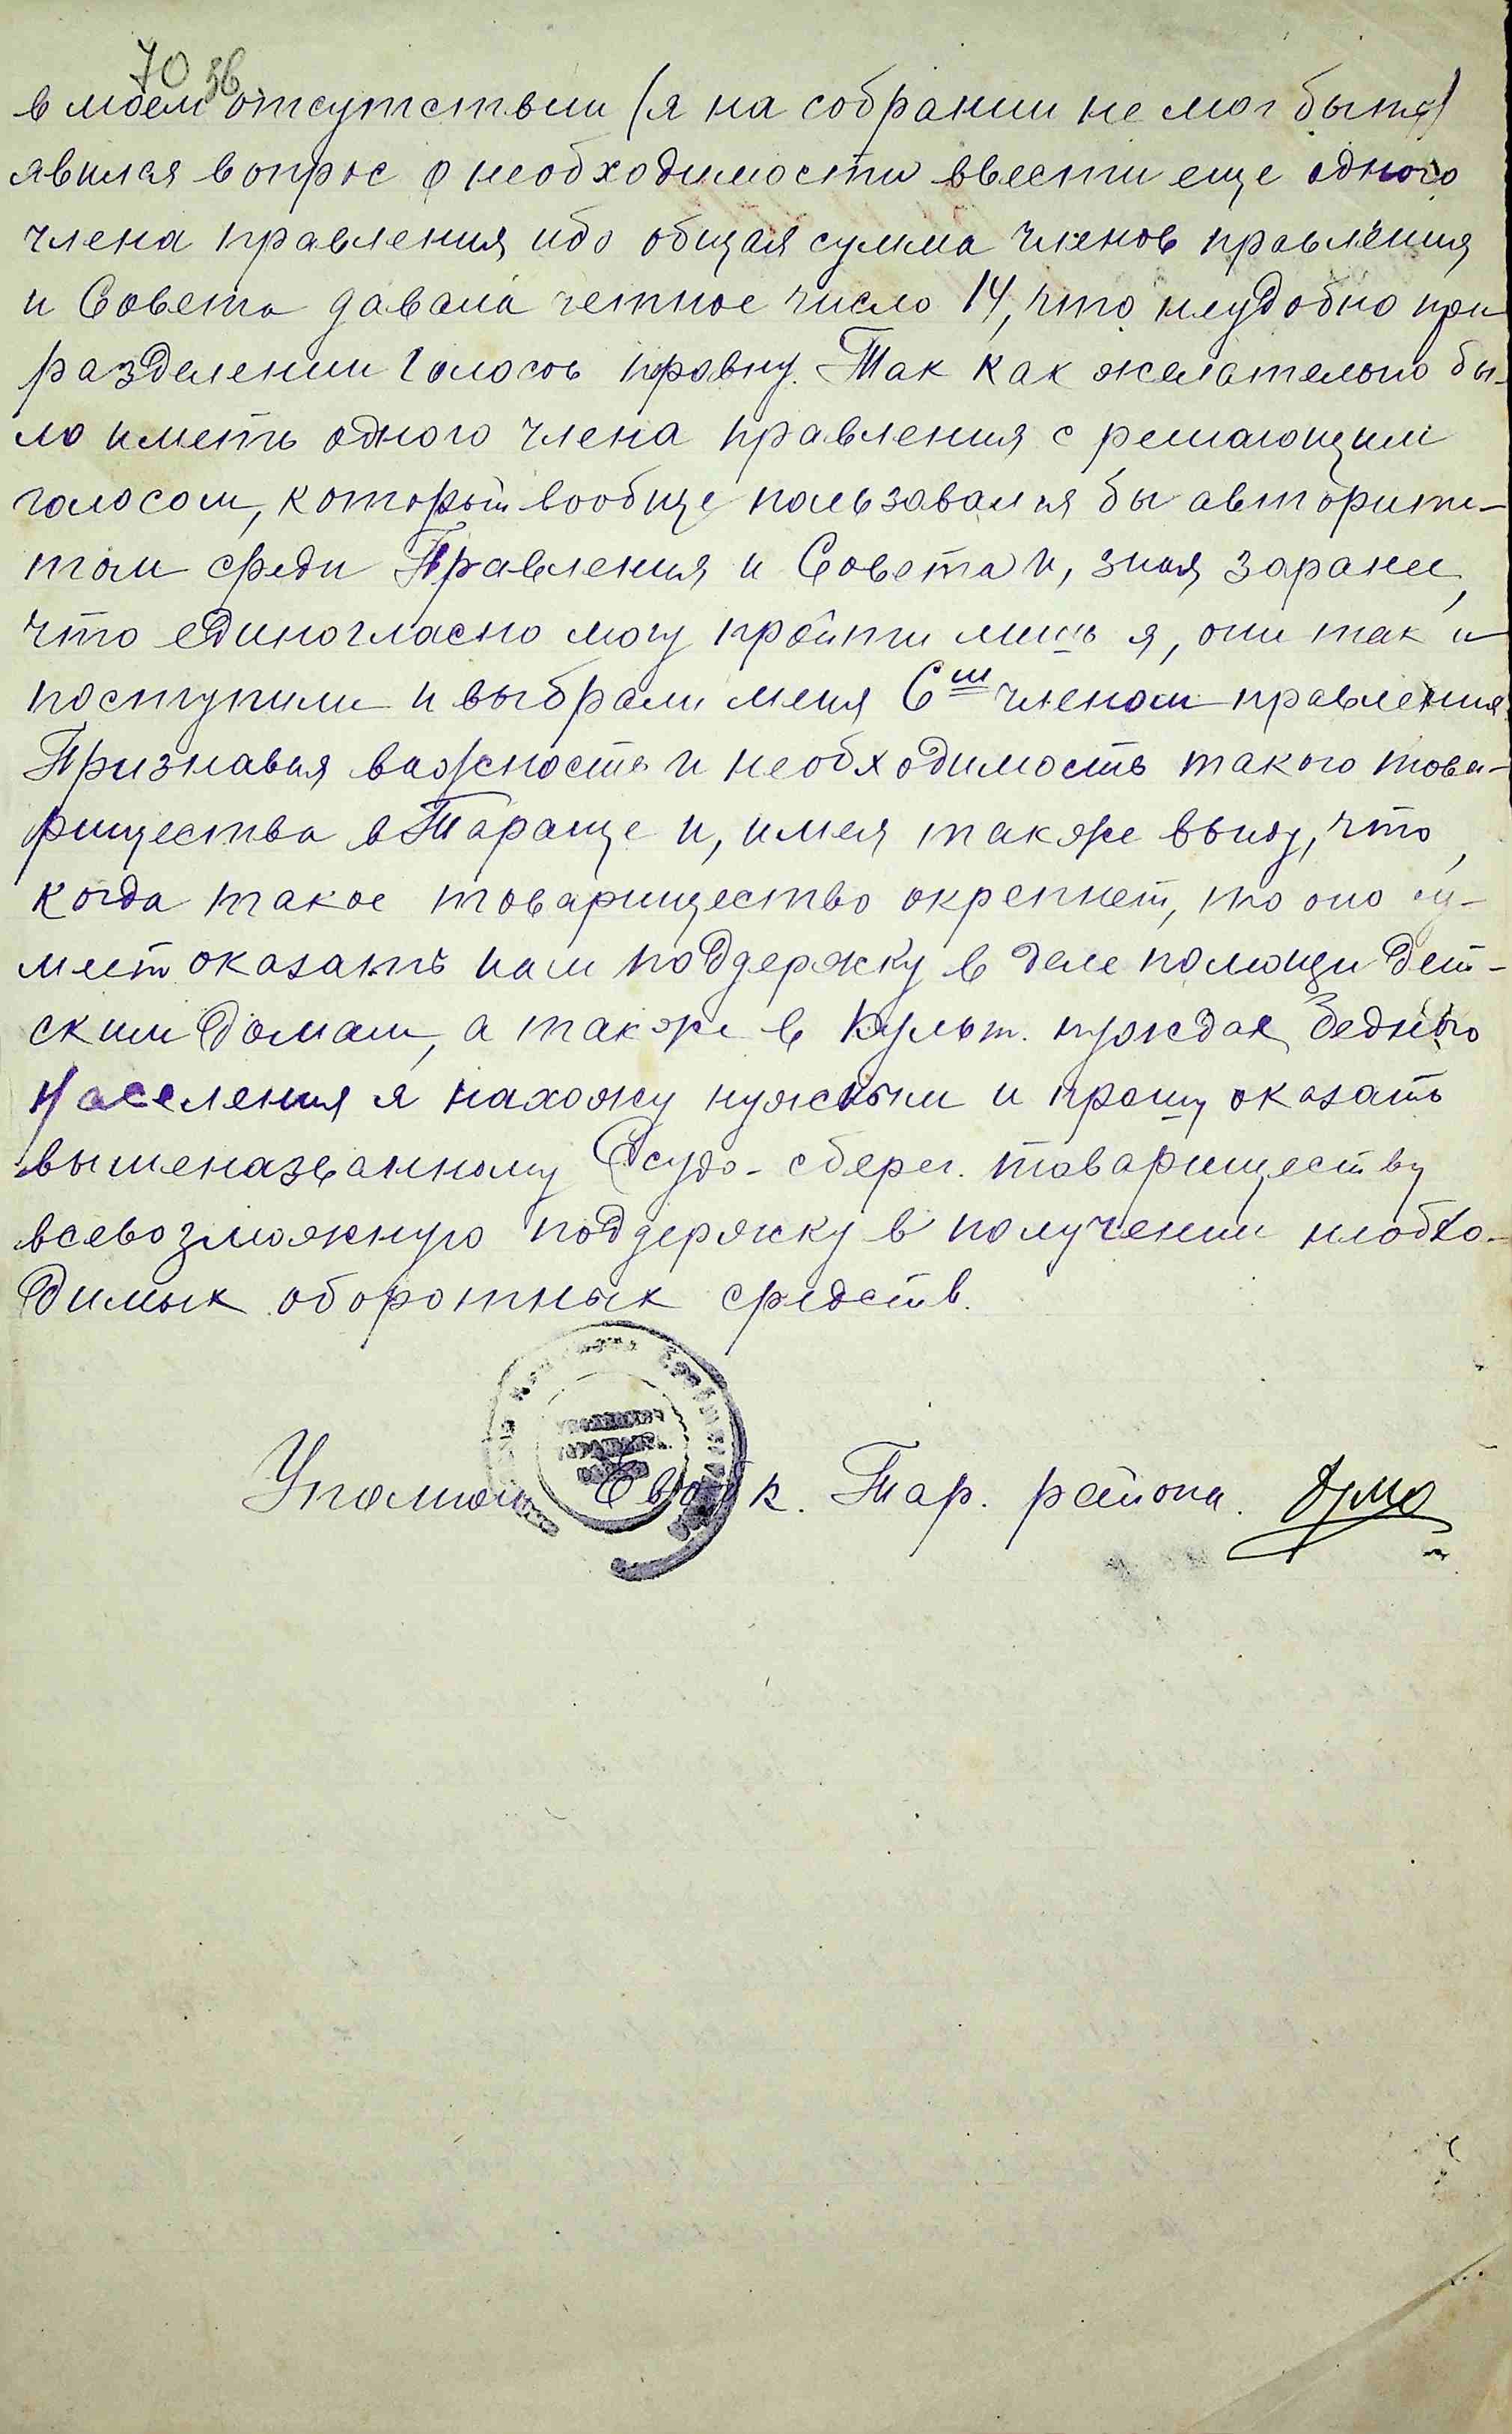 70 об
в моем отсутствии (я на собрании не мог быть)
явился вопрос о необходимости ввести еще одного
члена правления, ибо общая сумма членов правления
и Совета давала четное число 14, что неудобно при
разделении голосов поровну. Так как желательно бы-
ло иметь одного члена правления с решающим
голосом, который вообще пользовался бы авторите-
том среди Правления и Совета и, зная заранее,
что единогласно могу пройти лишь я, они так и
поступили и выбрали меня 6ым членом правления.
Признавая важность и необходимость такого това-
рищества в Тараще и, имея также ввиду, что,
когда такое товарищество окрепнет, то оно су-
меет оказать нам поддержку в деле помощи дет-
ским домам, а также в культ. нуждах бедного
населения я нахожу нужным и прошу оказать
вышеназванному Ссудо-сберег. товариществу
всевозможную поддержку в получении необхо-
димых оборотных средств.
Уполном. Евобк. Тар. района.